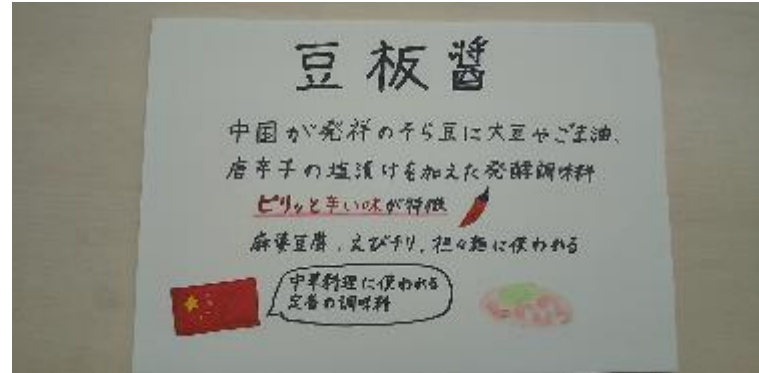 豆板醤
中国が発祥のそら豆に大豆やごま油、
唐辛子の塩漬けを加えた発酵調味料
ピリッと辛い味が特徴
麻婆豆腐、えびチリ、担々麺に使われる
中華料理に使われる
定番の調味料